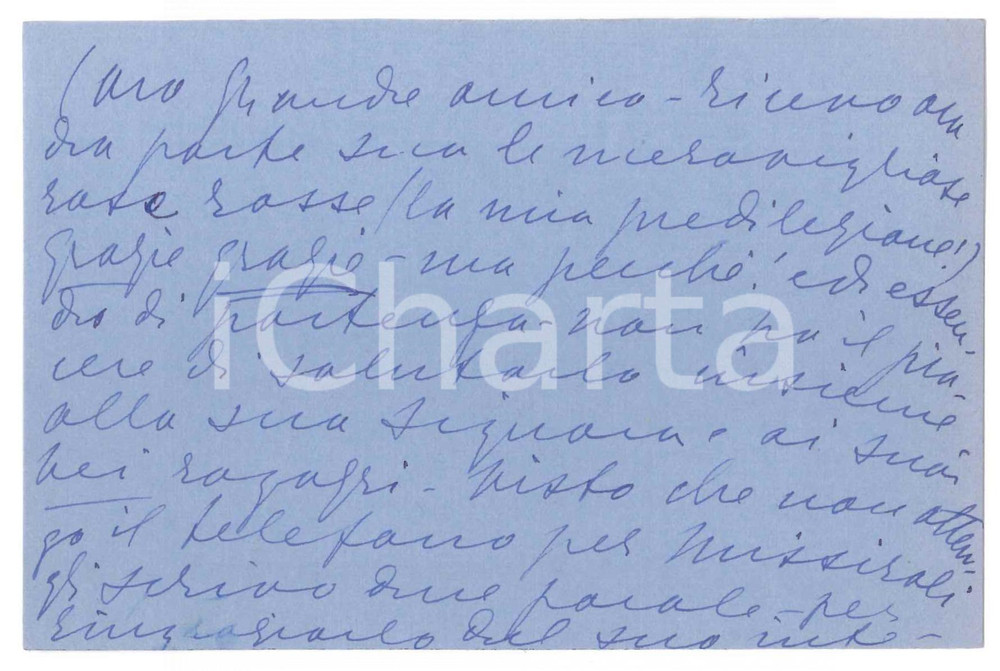 Caro Grande amico - Ricevo ora
da parte sua le meravigliose
rose rosse (la mia predilezione!)
Grazie grazie - ma perché! ed essen-
do di partenza - non ho il pia-
cere di salutarlo insieme
alla sua Signora e ai suoi
bei ragazzi - Visto che non otten-
go il telefono per Missiroli
gli scrivo due parole - per
ringraziarlo del suo inte-
iCharta